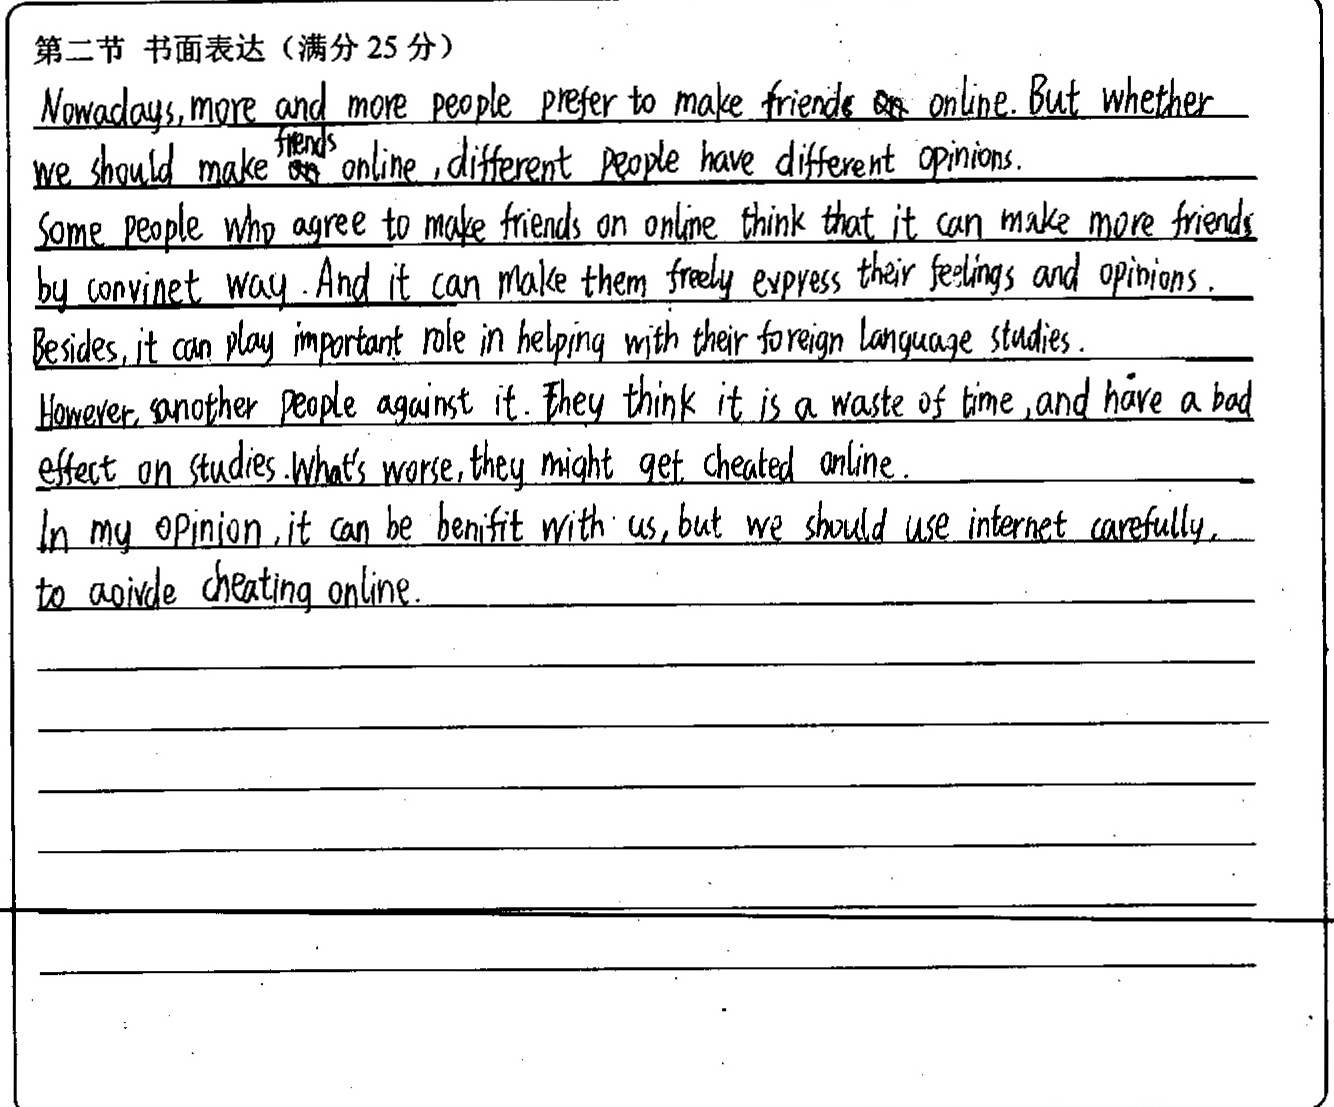 第二节 书面表达（满分 25 分）
Nowadays, more and more people prefer to make friends online. But whether
we should make friends online, different people have different opinions.
Some people who agree to make friends on online think that it can make more friends
by convinet way. And it can make them freely express their feelings and opinions.
Besides, it can play important role in helping with their foreign language studies.
However, another people against it. They think it is a waste of time, and have a bad
effect on studies. What's worse, they might get cheated online.
In my opinion, it can be benifit with us, but we should use internet carefully,
to aoivde cheating online.